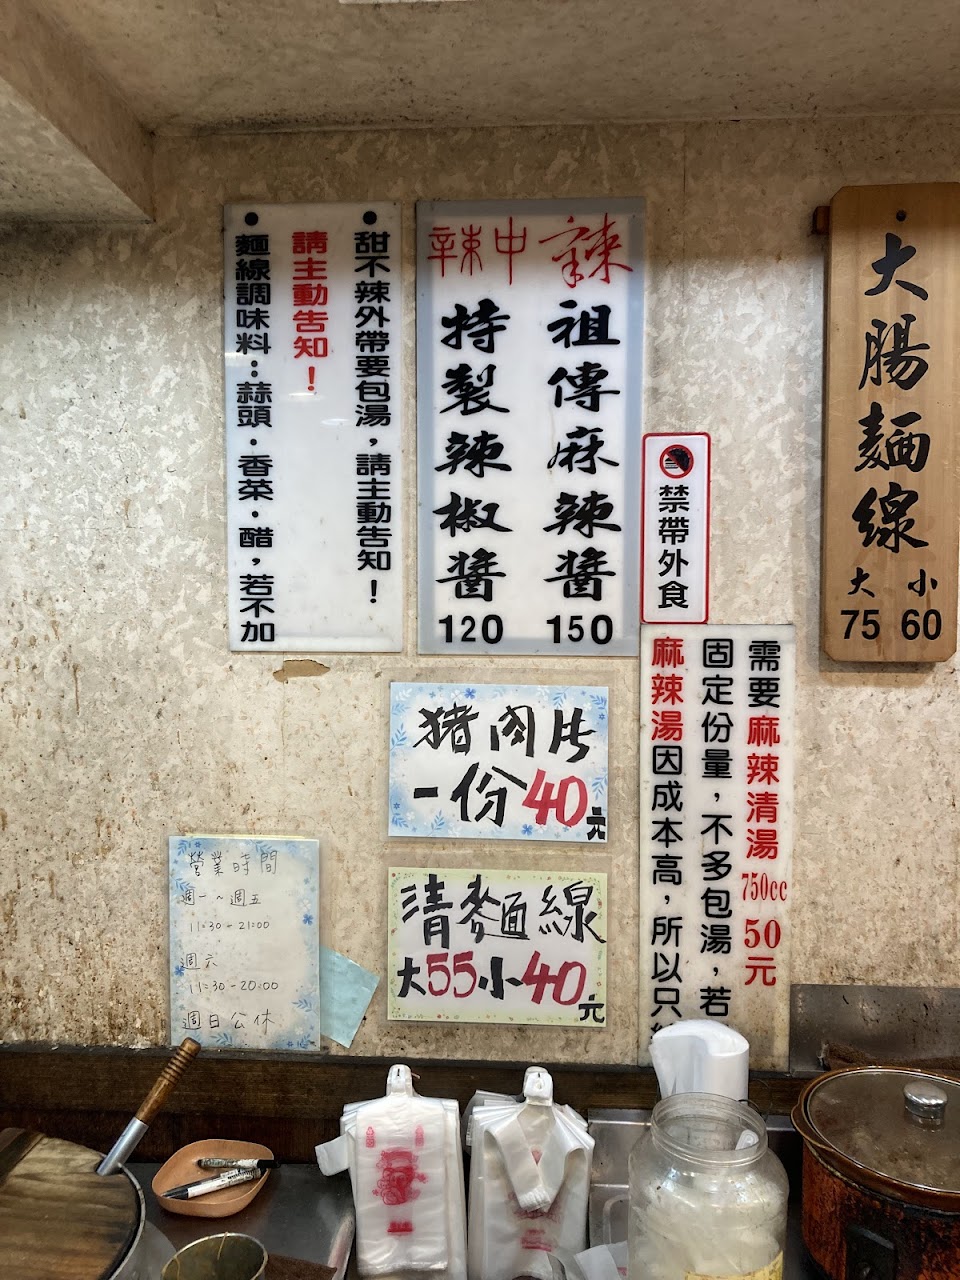 ●麵線調味料：蒜頭．香菜．醋，若不加
請主動告知！
●甜不辣外帶要包湯，請主動告知！
辣
祖傳麻辣醬
150
中辣
特製辣椒醬
120
禁帶外食
大腸麵線
大 小
75 60
麻辣湯因成本高，所以只
固定份量，不多包湯，若
需要麻辣清湯750cc 50元
豬肉片
一份40元
清麵線
大55小40元
營業時間
週一～週五
11:30-21:00
週六
11:30-20:00
週日公休